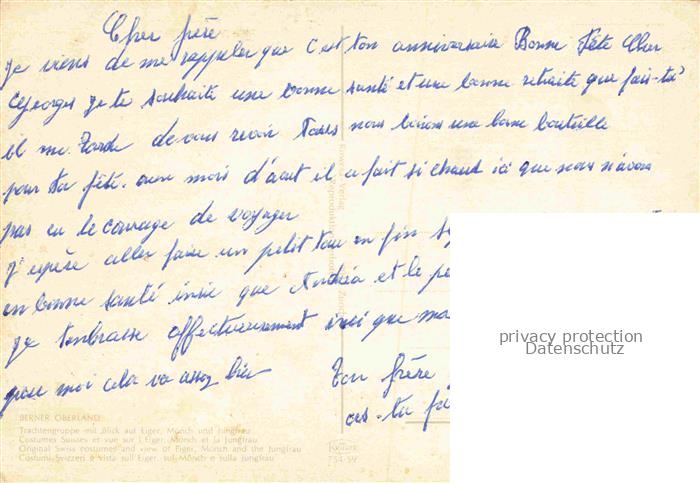 Cher frère
Je viens de me rappeler que c'est ton anniversaire Bonne Fête Cher
Georges je te souhaite une bonne santé et une bonne retraite que fais-tu
il me tarde de vous revoir Tous nous boirons une bonne bouteille
pour ta fête. au mois d'aout il a fait si chaud ici que nous n'avons
pas eu le courage de voyager
J'espère aller faire un petit tour en fin
en bonne santé insie que Andréa et le
je t'enbrasse affectueusement insi que ma
pour moi cela va assez bien Ton frère
as-tu
privacy protection
Datenschutz
BERNER OBERLAND
Trachtengruppe mit Blick auf Eiger, Mönch und Jungfrau
Costumes Suisses et vue sur l'Eiger, Mönch et la Jungfrau
Original Swiss costumes and view of Eiger, Mönch and the Jungfrau
Costumi Svizzeri e vista sull'Eiger, sul Mönch e sulla Jungfrau